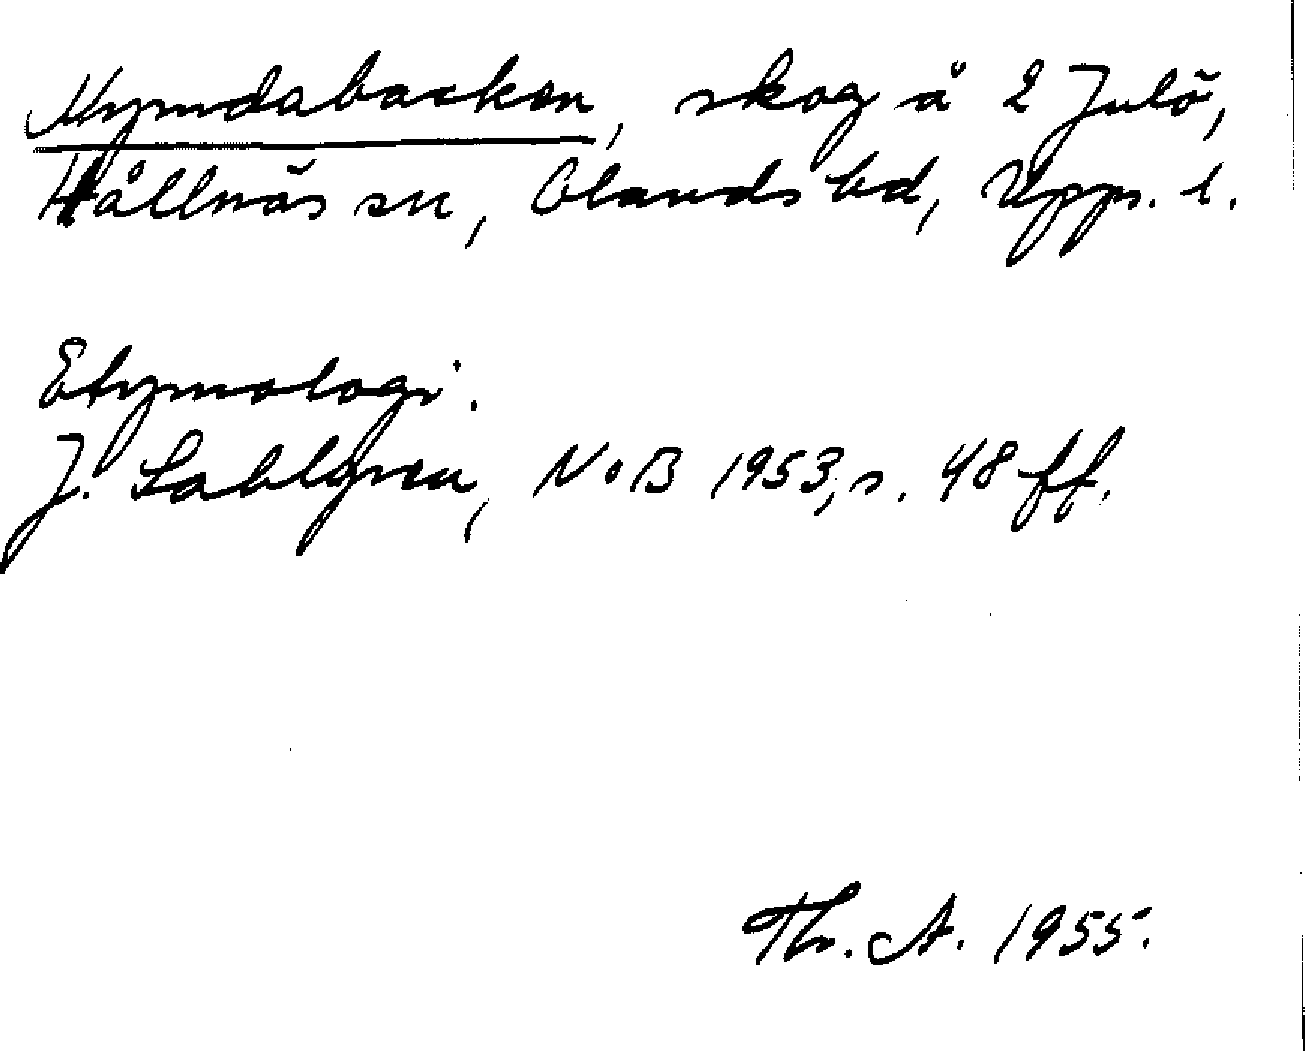 Myrndabacken, skog å 2 Julö,
Hållnäs sn, Olands hd, Upps. l.
Etymologi.
J. Sahlgren, NoB 1953, s. 48 ff.
Th. A. 1955.